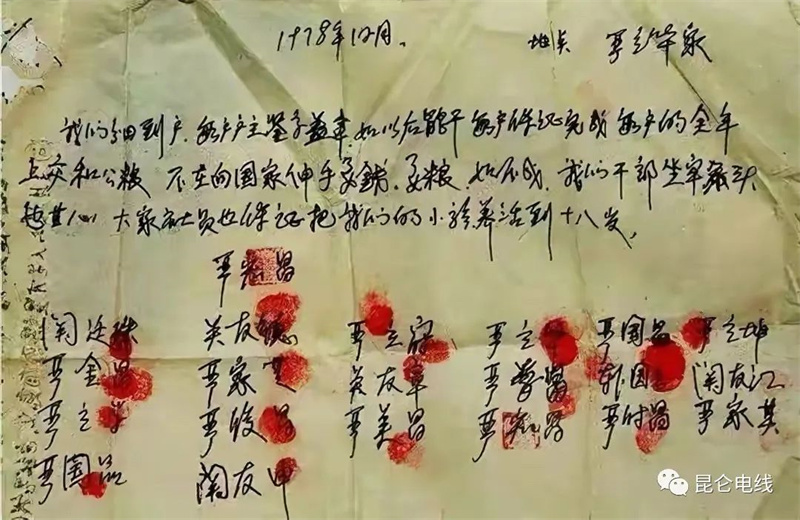 1978年12月. 地点 严立华家
我们分田到户. 每户户主签字盖章. 如以后能干 每户保证完成每户的全年
上交和公粮 不在向国家伸手要钱. 要粮. 如不成. 我们干部坐牢杀头
也甘心. 大家社员也保证把我们的小孩养活到十八岁.
严宏昌
关廷珠 关友德 严立符 严立华 严国昌 严立坤
严金昌 严家芝 关友章 严学昌 韩国云 关友江
严立学 严俊昌 严美昌 严宏昌 严付昌 严家其
严国品 关友申
昆仑电线